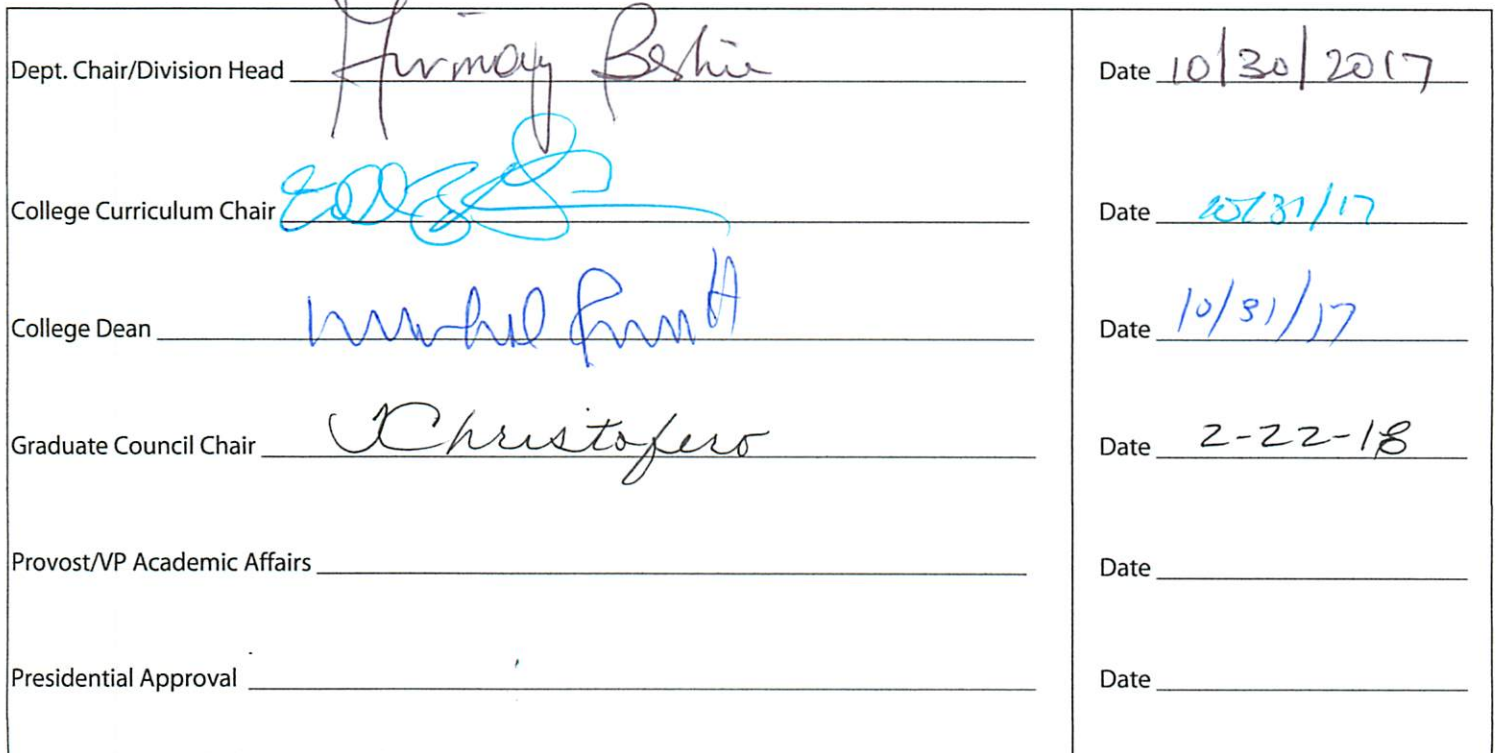 Dept. Chair/Division Head Date 10/30/2017
College Curriculum Chair Date 10/31/17
College Dean Date 10/31/17
Graduate Council Chair JChristofero Date 2-22-18
Provost/VP Academic Affairs Date
Presidential Approval Date